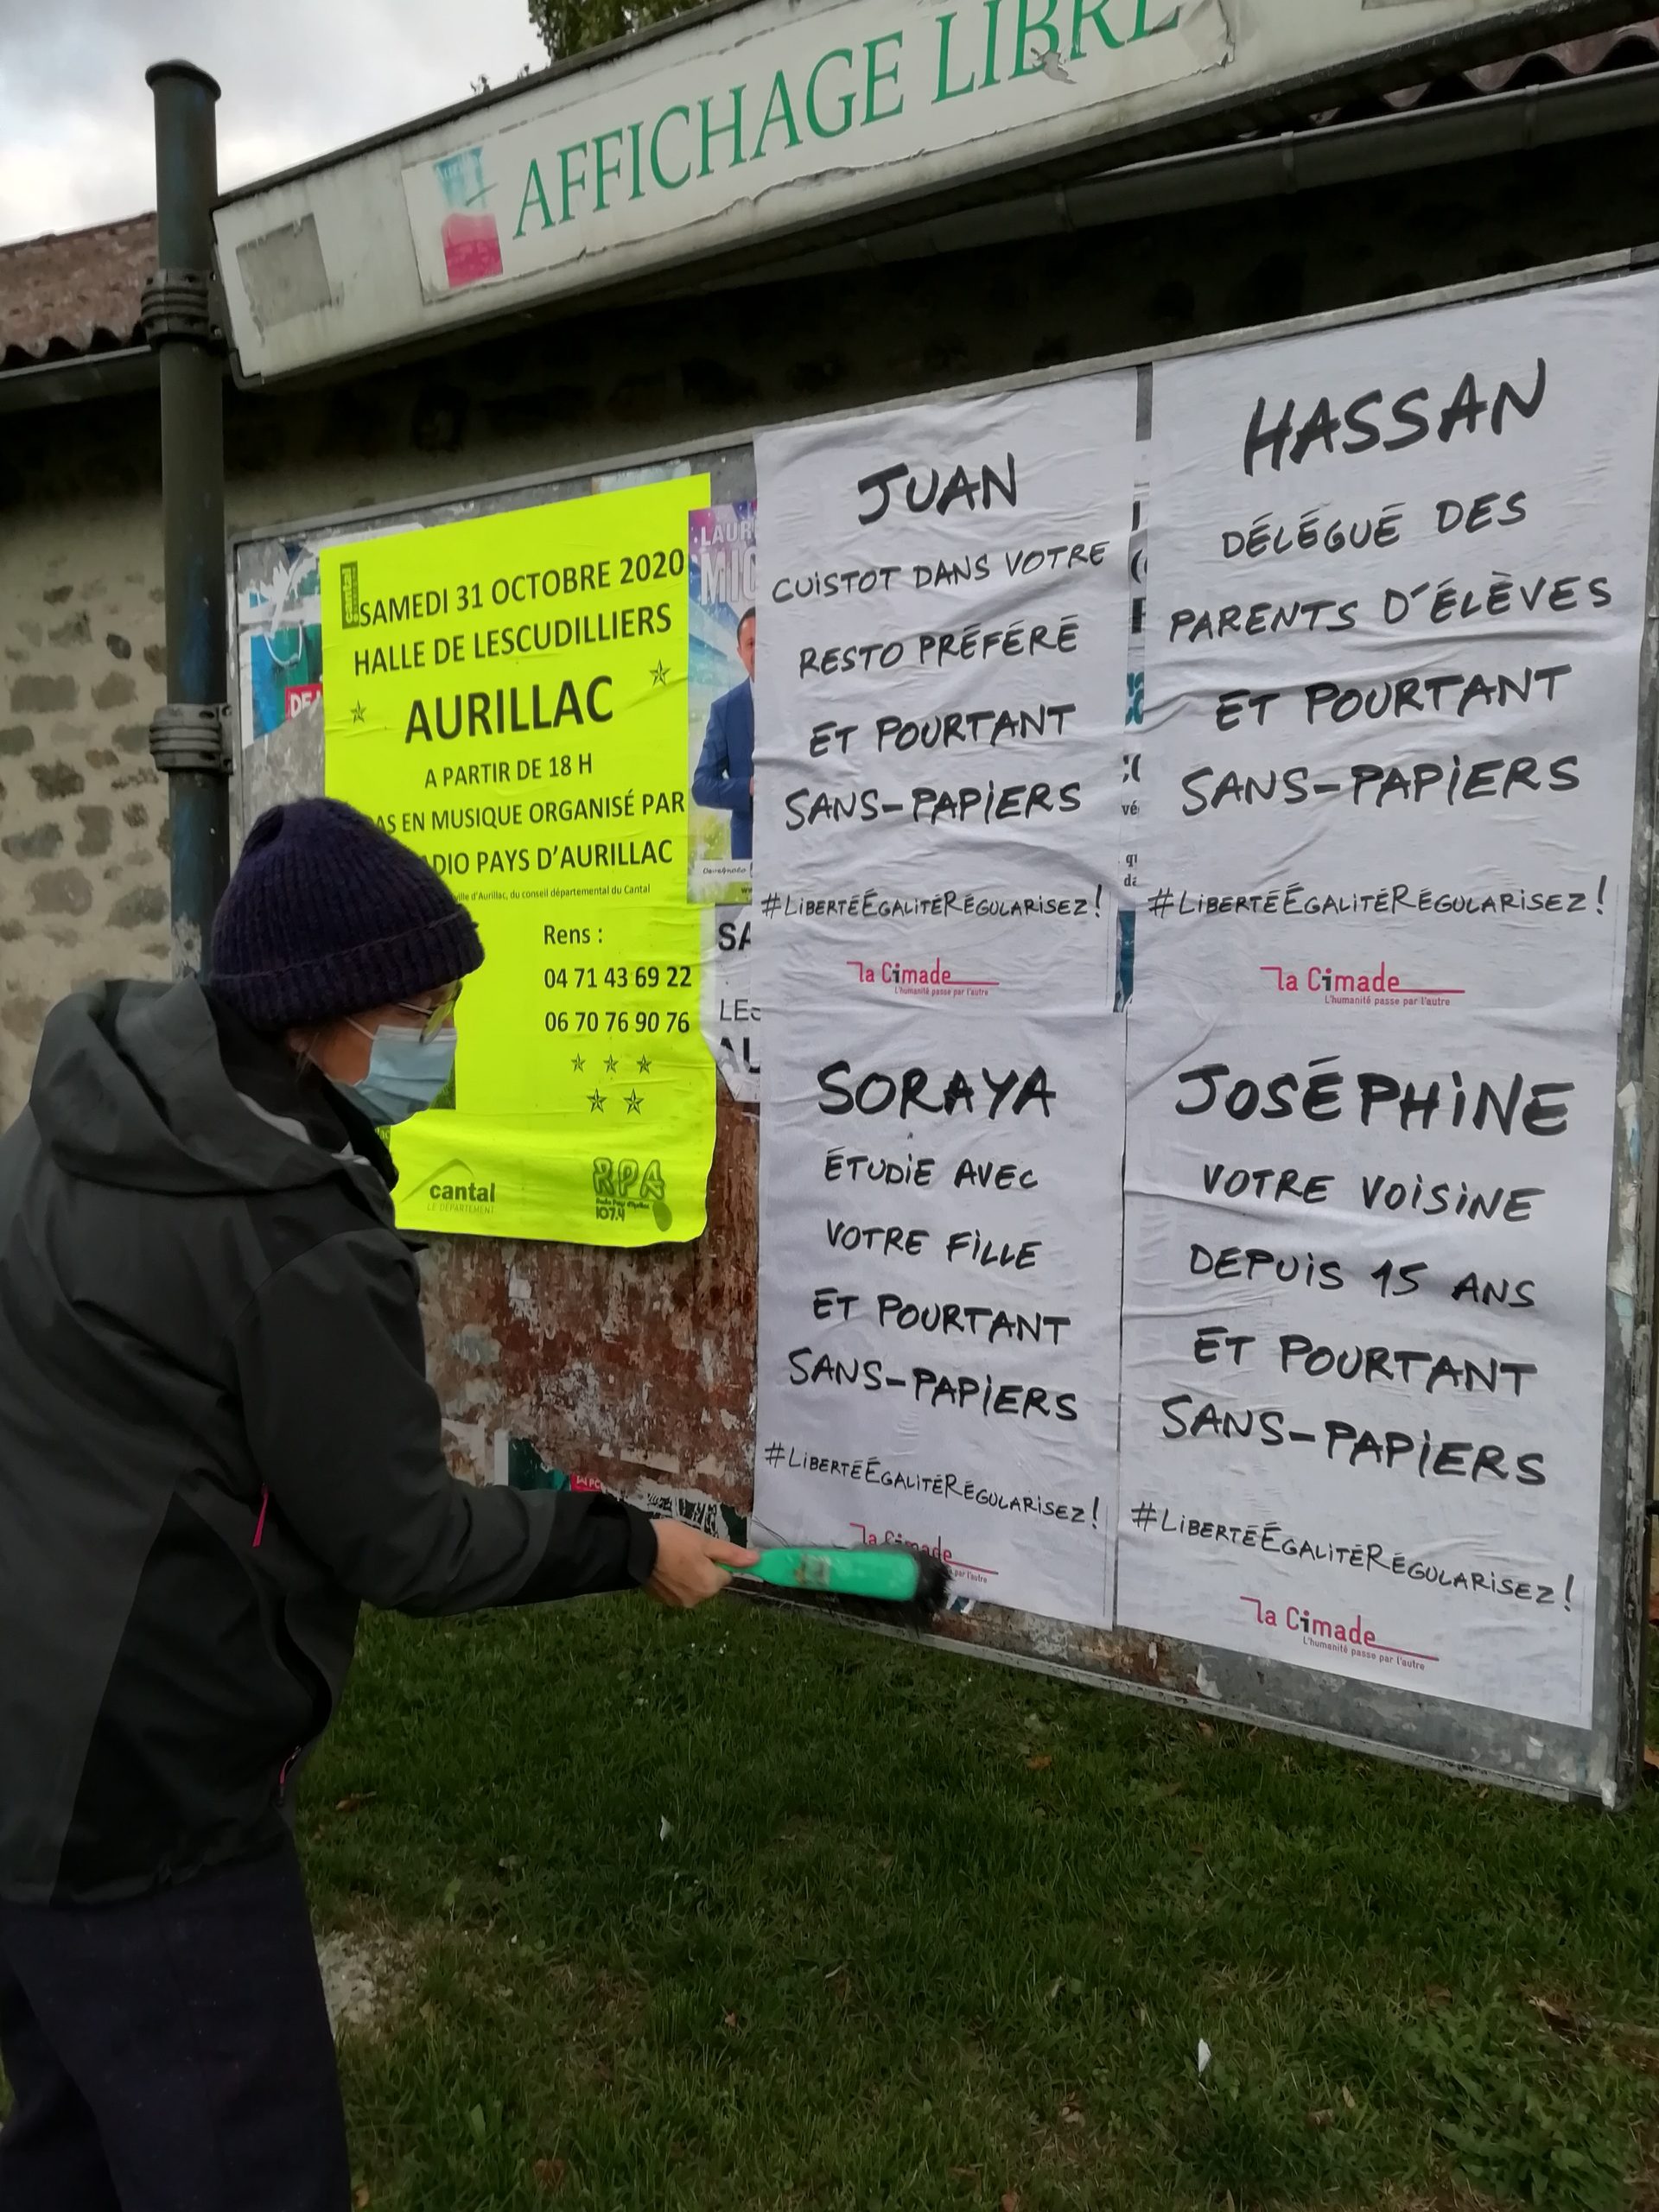 AFFICHAGE LIBRE
cantal
SAMEDI 31 OCTOBRE 2020
HALLE DE LESCUDILLIERS
AURILLAC
A PARTIR DE 18 H
EN MUSIQUE ORGANISÉ PAR
PAYS D'AURILLAC
ville d'Aurillac, du conseil départemental du Cantal
Rens :
04 71 43 69 22
06 70 76 90 76
cantal
LE DÉPARTEMENT
RPA
Radio Pays d'Aurillac
107.4
LAUR
MIC
SA
LES
AU
JUAN
CUISTOT DANS VOTRE
RESTO PRÉFÉRÉ
ET POURTANT
SANS-PAPIERS
#LIBERTÉÉGALITÉRÉGULARISEZ!
la Cimade
L'humanité passe par l'autre
HASSAN
DÉLÉGUÉ DES
PARENTS D'ÉLÈVES
ET POURTANT
SANS-PAPIERS
#LIBERTÉÉGALITÉRÉGULARISEZ!
la Cimade
L'humanité passe par l'autre
SORAYA
ÉTUDIE AVEC
VOTRE FILLE
ET POURTANT
SANS-PAPIERS
#LIBERTÉÉGALITÉRÉGULARISEZ!
la Cimade
par l'autre
JOSÉPHINE
VOTRE VOISINE
DEPUIS 15 ANS
ET POURTANT
SANS-PAPIERS
#LIBERTÉÉGALITÉRÉGULARISEZ!
la Cimade
L'humanité passe par l'autre